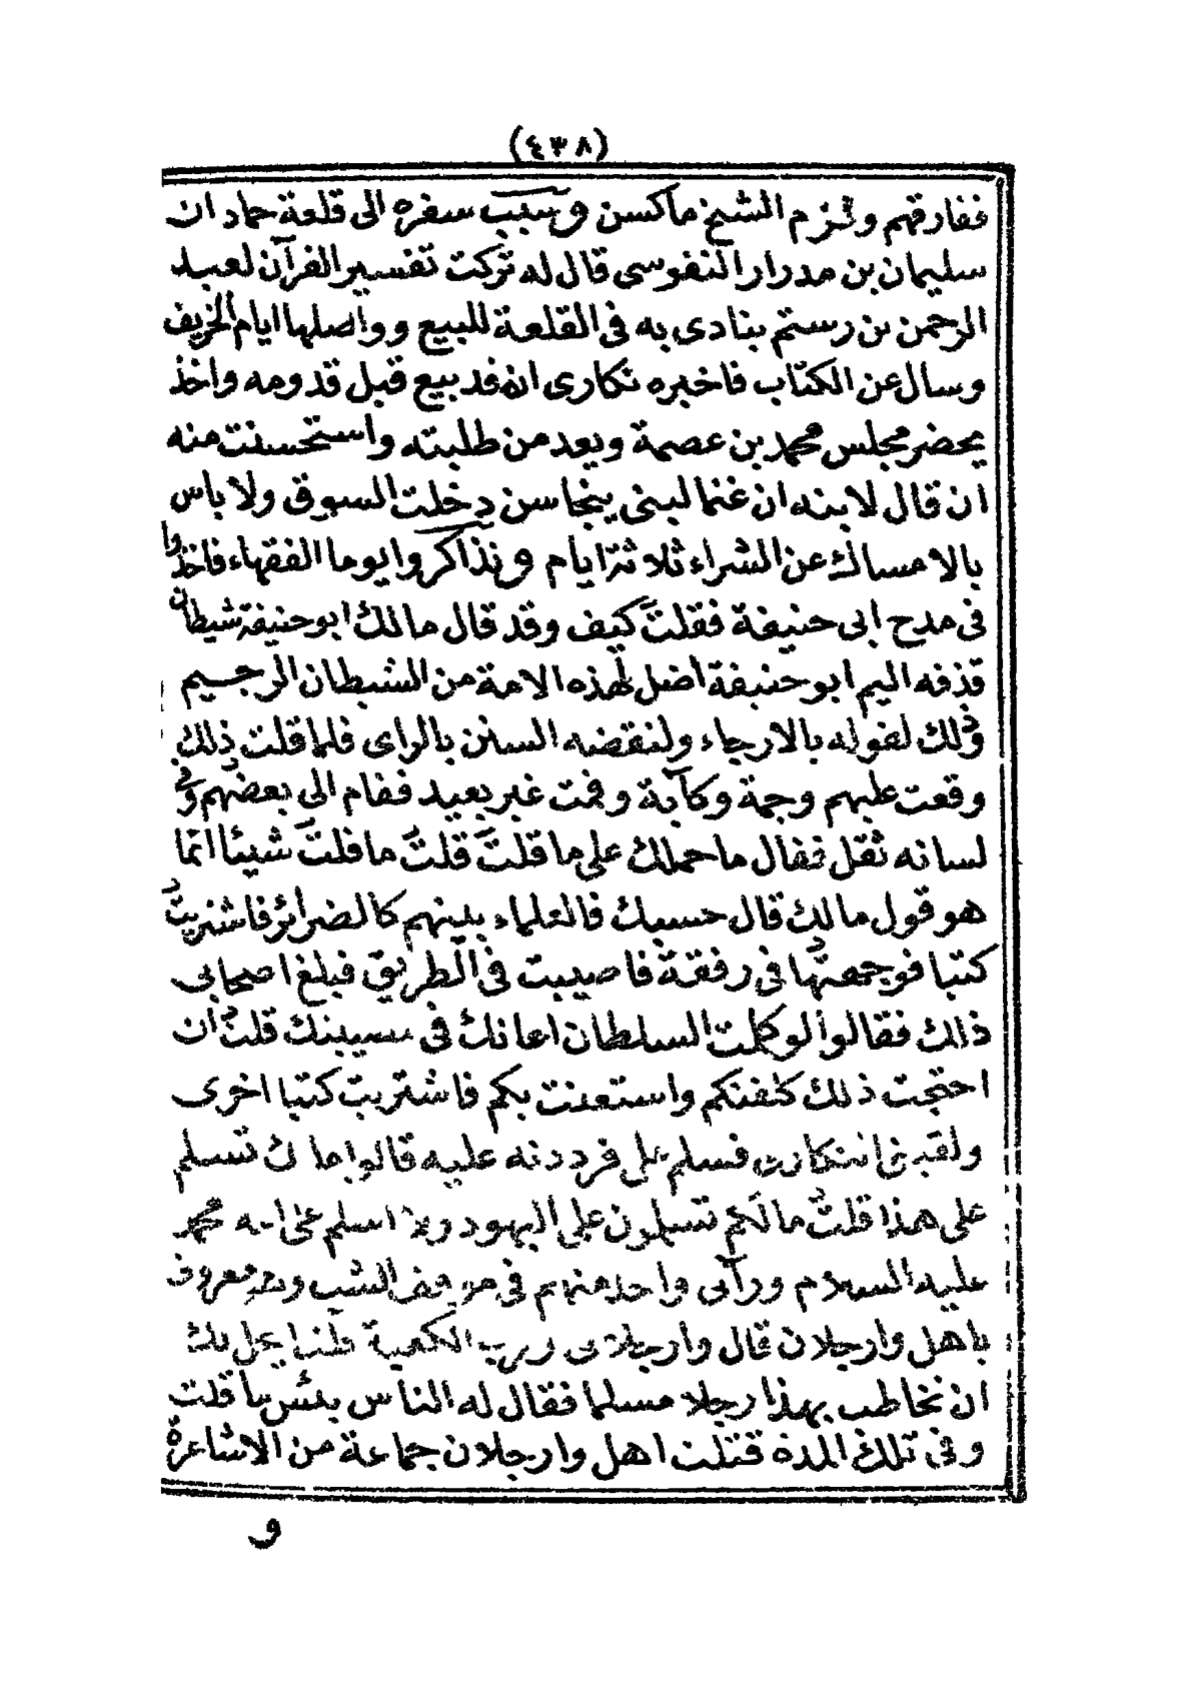 (٤٣٨)
ففارقهم ولزم الشيخ ماكسن وسبب سفره الى قلعة حماد ان
سليمان بن مدرار النفوسى قال له تركت تفسير القرآن لعبد
الرحمن بن رستم ينادى به فى القلعة للبيع وواصلها ايام الخريف
وسال عن الكتاب فاخبره نكارى انه قد بيع قبل قدومه واخذ
يحضر مجلس محمد بن عصمة ويعد من طلبته واستحسنت منه
ان قال لابنه ان غنما لبنى ينجاسن دخلت السوق ولا باس
بالامساك عن الشراء ثلاثة ايام وتذاكروا يوما الفقهاء فاخذوا
فى مدح ابى حنيفة فقلت كيف وقد قال مالك ابو حنيفة شيطان
قذفه اليم ابو حنيفة اضل لهذه الامة من الشيطان الرجيم
وذلك لقوله بالارجاء ولنقضه السنن بالراى فلما قلت ذلك
وقعت عليهم وجمة وكآبة وقمت غير بعيد فقام الى بعضهم وفى
لسانه ثقل فقال ما حملك على ما قلت قلت ما قلت شيئا انما
هو قول مالك قال حسبك فالعلماء بينهم كالضرائر فاشتريت
كتبا فوجهتها فى رفقة فاصيبت فى الطريق فبلغ اصحابى
ذلك فقالوا لو كلمت السلطان اعانك فى سببك قلت ان
احتجت ذلك كلفتكم واستعنت بكم فاشتريت كتبا اخرى
ولقينى نكارى فسلم على فرددته عليه قالوا مالك تسلم
على هذا قلت مالكم تسلمون على اليهود ولا اسلم على امة محمد
عليه السلام ورآنى واحد منهم فى الشيب معروف
باهل وارجلان قال وارجلانى ورب الكعبة قلنا يحل لك
ان تخاطب بهذا رجلا مسلما فقال له الناس بئس ما قلت
وفى تلك المدة قتلت اهل وارجلان جماعة من الاشاعرة
و